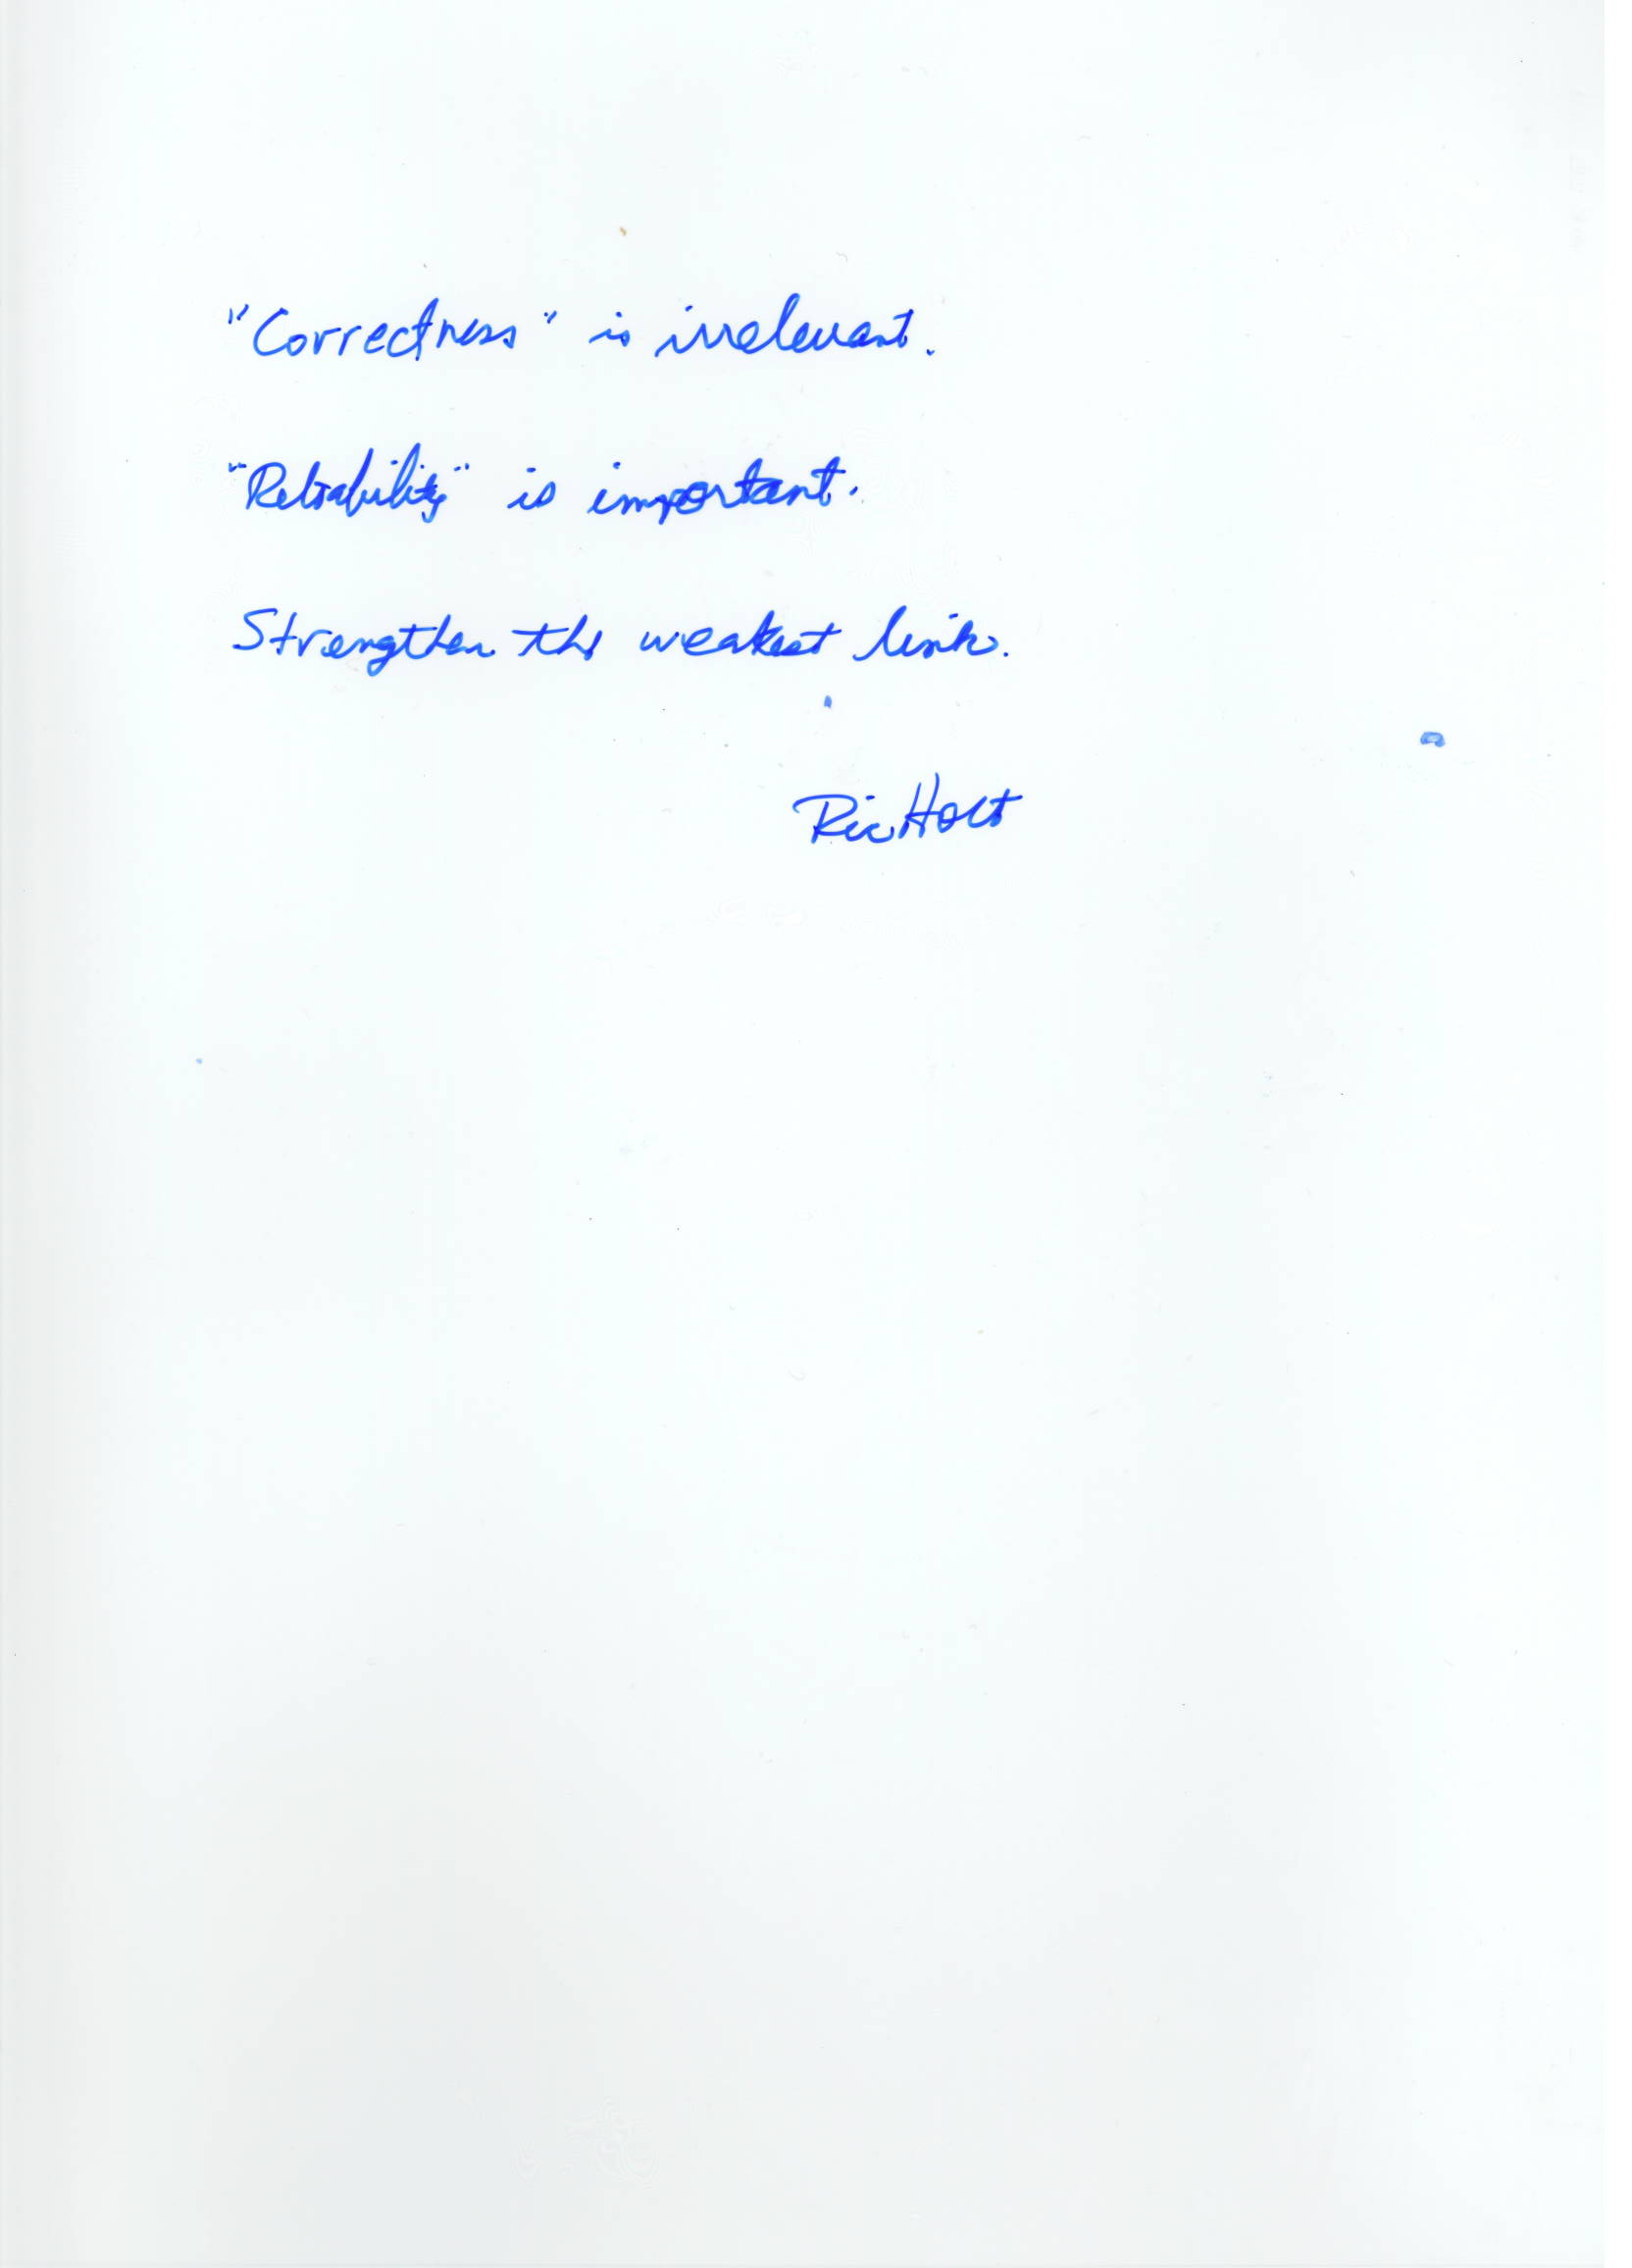 "Correctness" is irrelevant.
"Reliability" is important.
Strengthen the weakest link.
Ric Holt